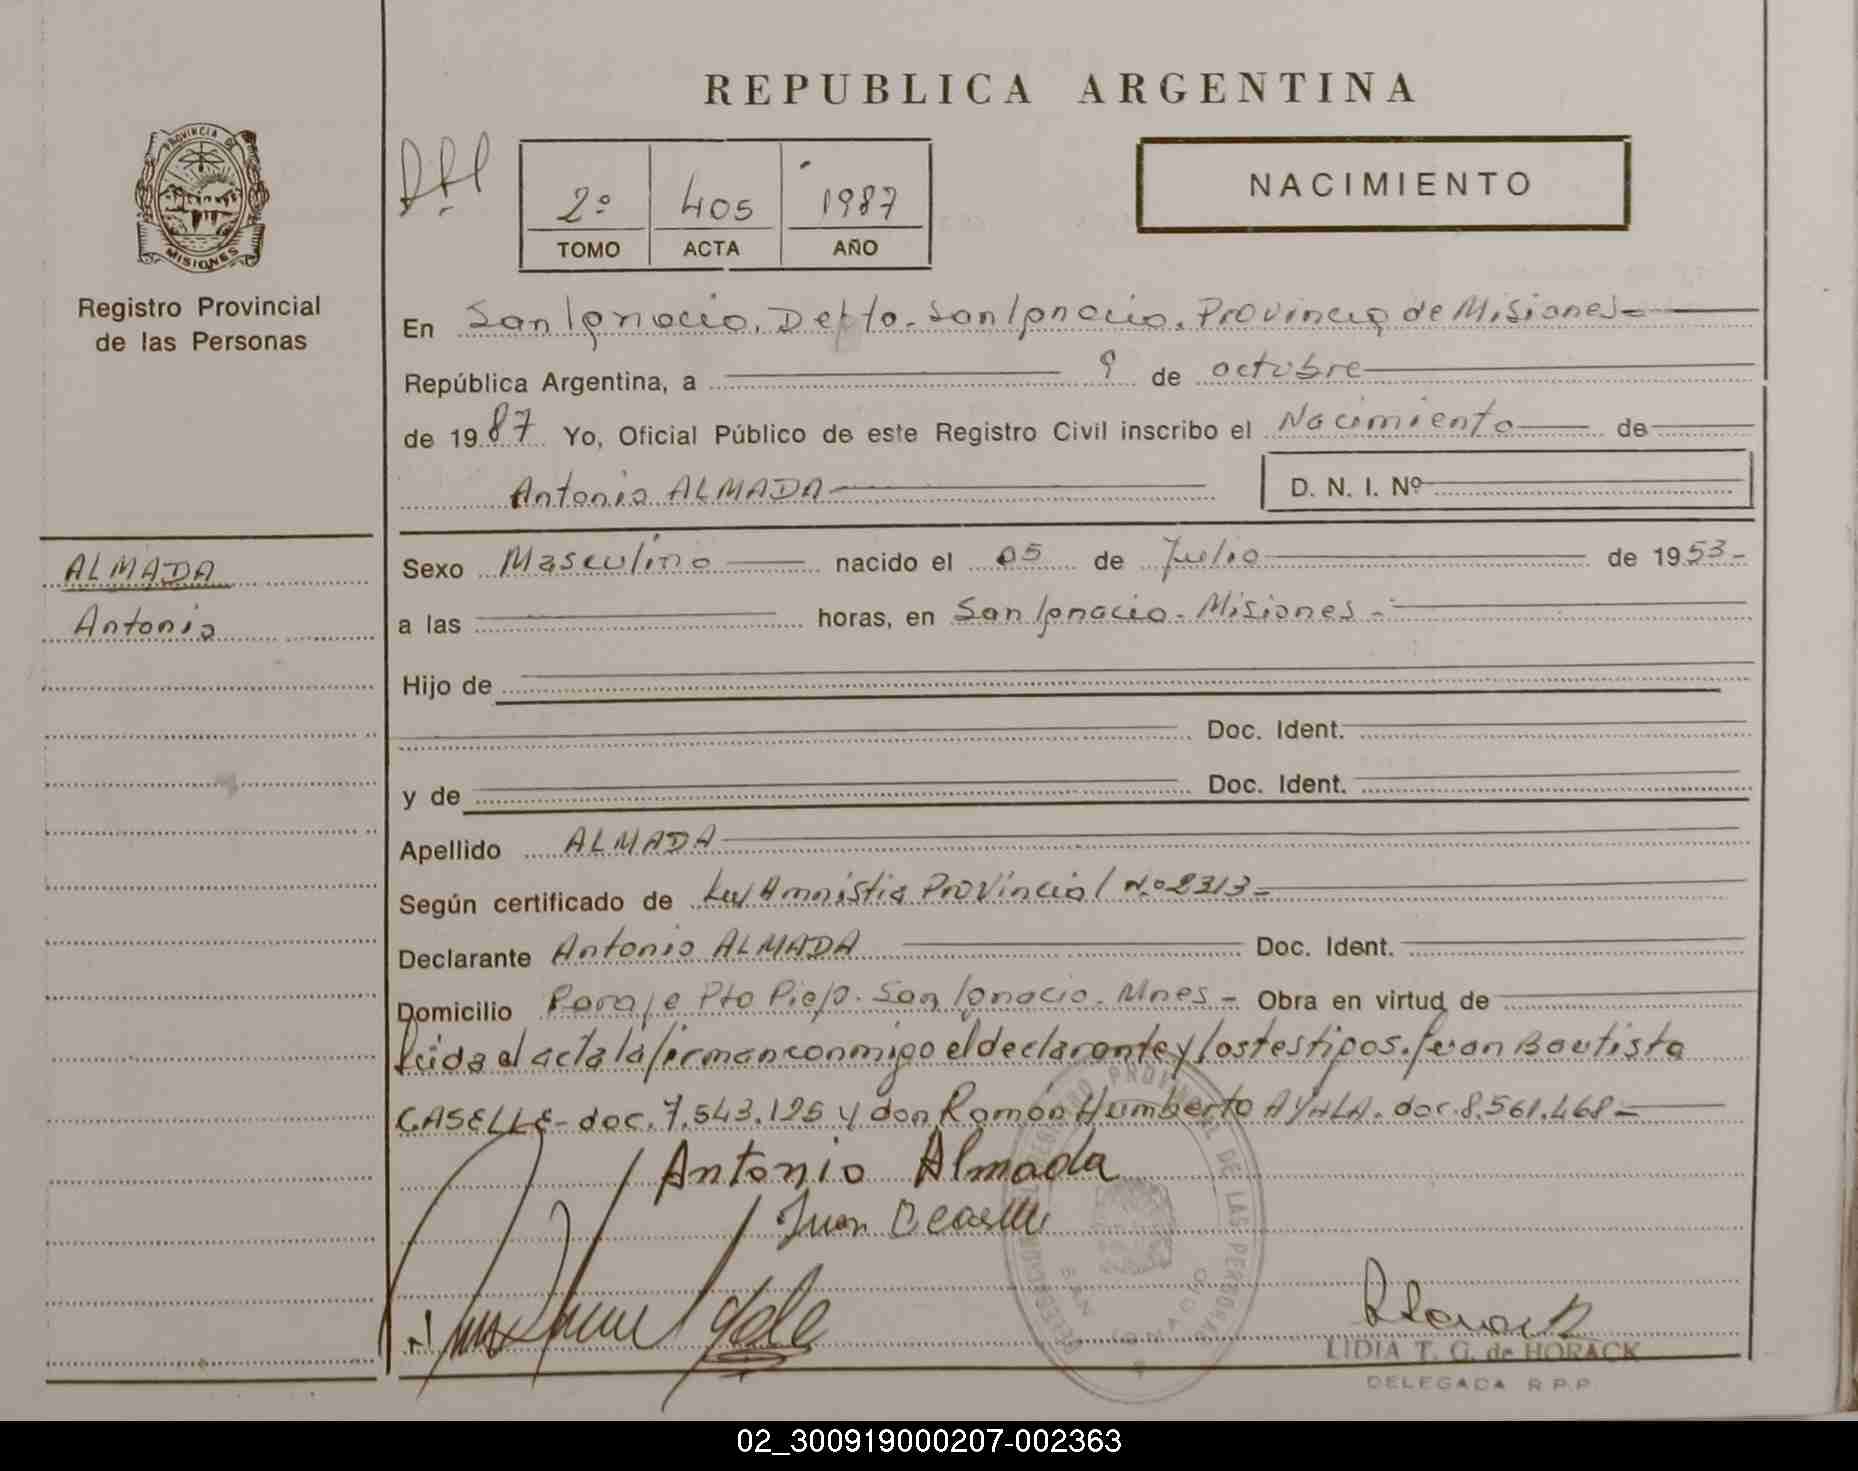 REPUBLICA ARGENTINA
PROVINCIA DE
MISIONES
Registro Provincial
de las Personas
2º 405 1987
TOMO ACTA AÑO
NACIMIENTO
En San Ignacio. Depto. San Ignacio. Provincia de Misiones-
República Argentina, a 9 de octubre
de 1987 Yo, Oficial Público de este Registro Civil inscribo el Nacimiento de
Antonio ALMADA D. N. I. Nº
ALMADA
Antonio
Sexo Masculino nacido el 05 de Julio de 1953-
a las horas, en San Ignacio - Misiones -
Hijo de
Doc. Ident.
y de Doc. Ident.
Apellido ALMADA
Según certificado de Ley Amnistia Provincial N.º 2313-
Declarante Antonio ALMADA Doc. Ident.
Domicilio Paraje Pto San Ignacio. Mnes - Obra en virtud de
leida el acta la firman conmigo el declarante y los testigos. Juan Bautista
CASELLE - doc. 7.543.125 y don Ramón Humberto AYALA. doc. 8.561.468-
Antonio Almada
Juan
REGISTRO PROVINCIAL DE LAS PERSONAS
SAN IGNACIO
LIDIA T. G. de HORACK
DELEGADA R.P.P.
02_300919000207-002363